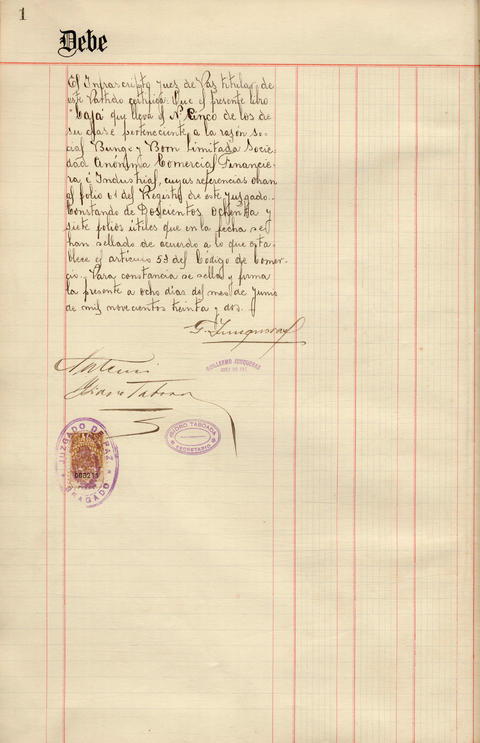 1
Debe
El Infrascripto Juez de Paz titular, de
este Partido certifica: Que el presente libro
"Caja" que lleva el Nº Cinco de los de
su clase perteneciente a la razón so-
cial Bunge y Born Limitada Socie-
dad Anónima Comercial Financie-
ra é Industrial, cuyas referencias obran
al folio 61 del Registro de este juzgado.
Constando de Doscientos Ochenta y
siete folios útiles que en la fecha se
han sellado de acuerdo a lo que esta-
blece el artículo 53 del Código de Comer-
cio. Para constancia se sella y firma
la presente a ocho días del mes de Junio
de mil novecientos treinta y dos.
G. Junqueras
GUILLERMO JUNQUERAS
JUEZ DE PAZ
Ante mi
Isidro Taboada
ISIDRO TABOADA
SECRETARIO
JUZGADO DE PAZ
BRAGADO